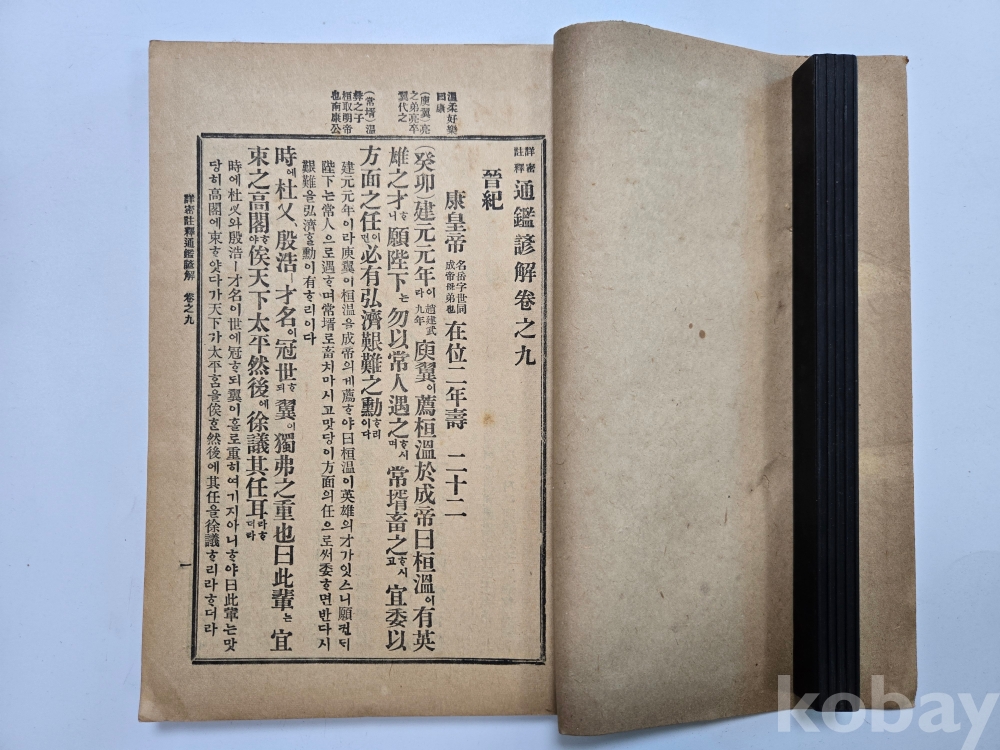 溫柔好樂
曰康
(庾翼)亮
之弟亮卒
翼代之
(常壻)溫
彝之子
尙取明帝
也南康公
詳密註釋 通鑑諺解卷之九
晉紀
康皇帝 名岳字世同成帝母弟也 在位二年壽 二十二
(癸卯)建元元年이라 趙建武九年 庾翼이薦桓溫於成帝曰桓溫이有英
雄之才ᄒᆞ니願陛下는勿以常人遇之ᄒᆞ시며常壻畜之ᄒᆞ시고宜委以
方面之任이면必有弘濟艱難之勳ᄒᆞ리이다
建元元年이라庾翼이桓溫을成帝의게薦ᄒᆞ야曰桓溫이英雄의才가잇스니願컨ᄃᆡ
陛下는常人으로遇ᄒᆞ며常壻로畜치마시고맛당이方面의任으로써委ᄒᆞ면반다시
艱難을弘濟ᄒᆞᆯ勳이有ᄒᆞ리이다
時에杜乂、殷浩ㅣ才名이冠世ᄒᆞ되翼이獨弗之重也曰此輩는宜
束之高閣ᄒᆞ야俟天下太平然後에徐議其任耳라ᄒᆞ더라
時에杜乂와殷浩ㅣ才名이世에冠ᄒᆞ되翼이홀로重히여기지아니ᄒᆞ야曰此輩는맛
당히高閣에束ᄒᆞ얏다가天下가太平ᄒᆞᆷ을俟ᄒᆞᆫ然後에其任을徐議ᄒᆞ리라ᄒᆞ더라
詳密註釋通鑑諺解 卷之九
一
kobay